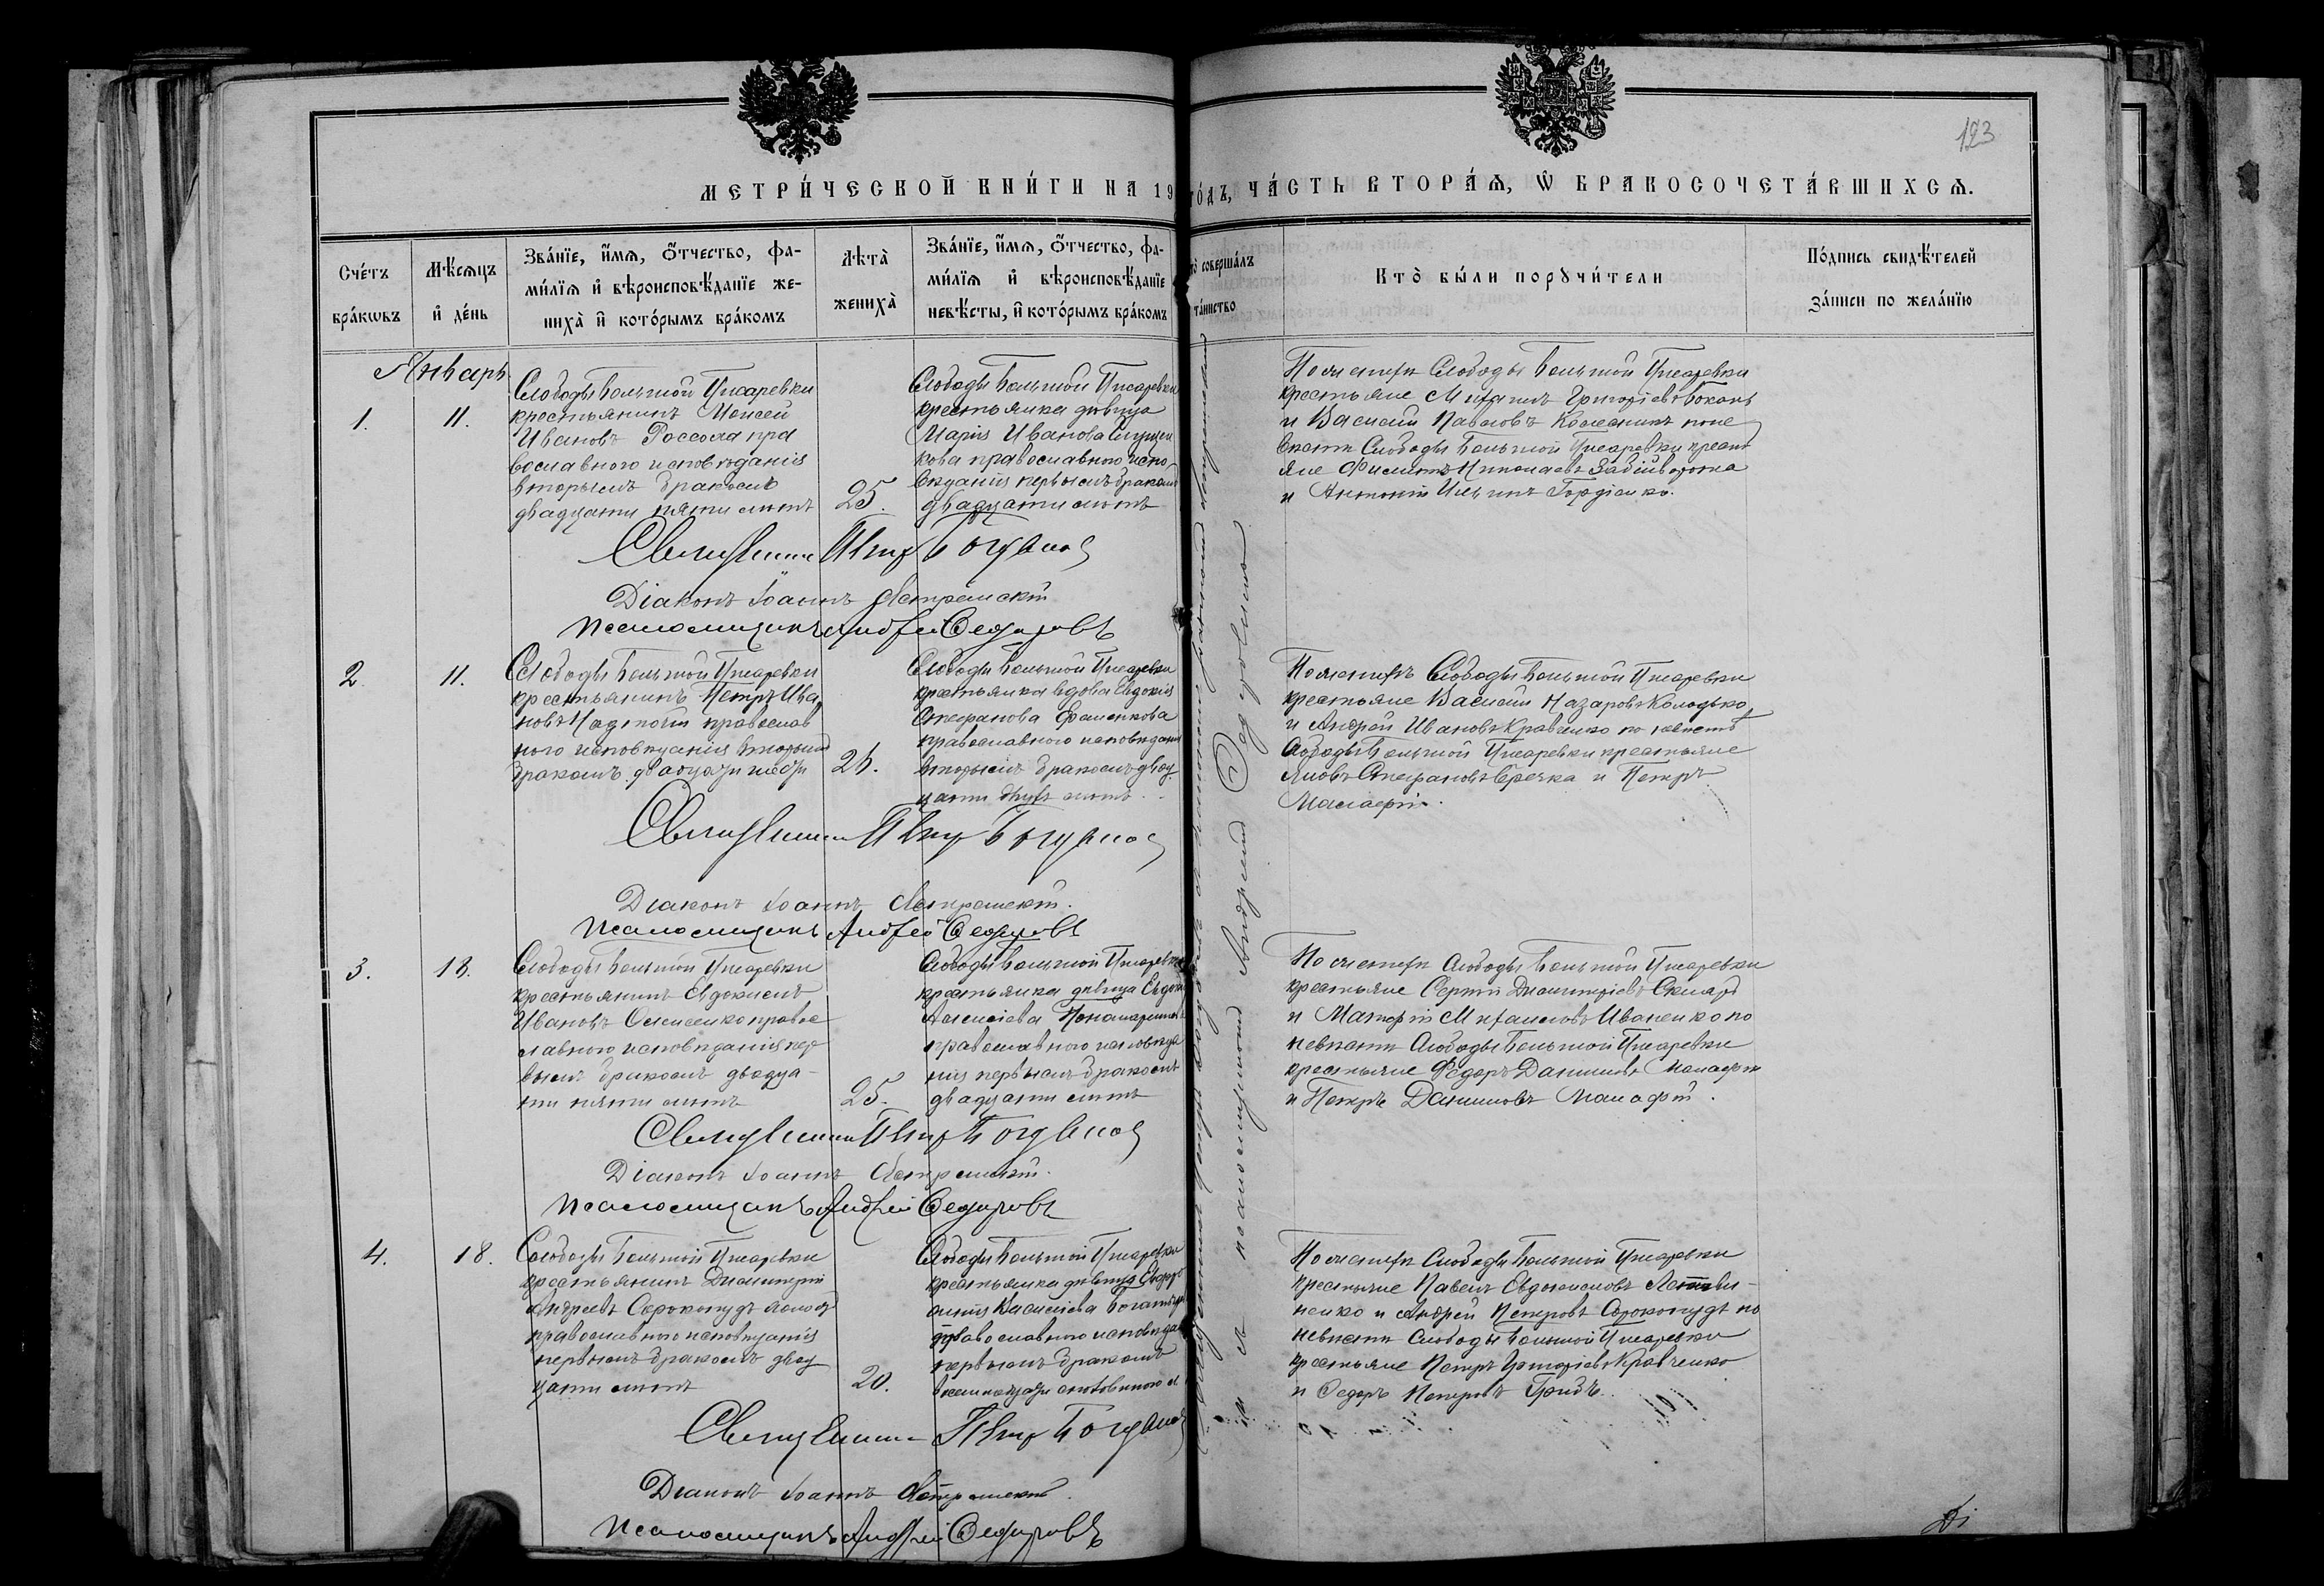 123
МЕТРИ́ЧЕСКОЙ КНИ́ГИ НА 19 ГО́ДЪ, ЧА́СТЬ ВТОРА́Ѧ, Ѽ БРАКОСОЧЕТА́ВШИХСѦ.
Сче́тъ бра́кѡвъ
Мѣ́сѧцъ и҆ де́нь
Зва́нїе, и҆́мѧ, ѻ҆́тчество, фа-
ми́лїѧ и҆ вѣроисповѣ́данїе же-
ниха̀ и҆ кото́рымъ бра́комъ
Лѣта̀ жениха̀
Зва́нїе, и҆́мѧ, ѻ҆́тчество, фа-
ми́лїѧ и҆ вѣроисповѣ́данїе
невѣ́сты, и҆ кото́рымъ бра́комъ
соверша́лъ
та́инство
Кто̀ бы́ли порꙋчи́тели
По́дпись свидѣ́телей
за́писи по жела́нїю
Январь
1.
11.
Слободы Большой Писаревки
крестьянинъ Моисей
Ивановъ Россоха пра
вославнаго исповѣданія
вторымъ бракомъ
двадцати пяти лѣтъ
25.
Слободы Большой Писаревки
крестьянка дѣвица
Марія Иванова
кова православнаго испо
вѣданія первымъ бракомъ
двадцати лѣтъ
По женихѣ Слободы Большой Писаревки
крестьяне Михаилъ Григоріевъ
и Василій Павловъ Колесникъ по не
вѣстѣ Слободы Большой Писаревки кресть
яне Филиппъ Николаевъ Забійворота
и Антоній Ильинъ Гордіенко.
Священникъ Петръ
Діаконъ Іоаннъ
Псаломщикъ Андрей Федоровъ
2
11.
Слободы Большой Писаревки
крестьянинъ Петръ Ива
новъ православ
наго исповѣданія вторымъ
бракомъ двадцати шести
26.
Слободы Большой Писаревки
крестьянка вдова Евдокія
Стефанова
православнаго исповѣданія
вторымъ бракомъ двад
цати лѣтъ
По женихѣ Слободы Большой Писаревки
крестьяне Василій Назаровъ Колодько
и Андрей Ивановъ Кравченко по невѣстѣ
Слободы Большой Писаревки крестьяне
Яковъ Стефановъ и Петръ
Малафій.
Священникъ Петръ
Діаконъ Іоаннъ
Псаломщикъ Андрей Федоровъ
3.
18.
Слободы Большой Писаревки
крестьянинъ Евдокимъ
Ивановъ правос
лавнаго исповѣданія пер
вымъ бракомъ двадца-
ти пяти лѣтъ
25.
Слободы Большой Писаревки
крестьянка дѣвица
Алексіева
православнаго исповѣда
нія первымъ бракомъ
двадцати лѣтъ
По женихѣ Слободы Большой Писаревки
крестьяне Сергій Димитріевъ Скляръ
и Матфій Михаиловъ Иваненко по
невѣстѣ Слободы Большой Писаревки
крестьяне Федоръ Даниловъ Малафій
и Петръ Даниловъ Малафій.
Священникъ Петръ
Діаконъ Іоаннъ
Псаломщикъ Андрей Федоровъ
4.
18.
Слободы Большой Писаревки
крестьянинъ Димитрій
Андреевъ Сорокопудъ
православнаго исповѣданія
первымъ бракомъ двад
цати лѣтъ
20.
Слободы Большой Писаревки
крестьянка дѣвица
Василіева
православнаго исповѣдан
первымъ бракомъ
По женихѣ Слободы Большой Писаревки
крестьяне Павелъ Евдокимовъ
ненко и Андрей Петровъ Сорокопудъ по
невѣстѣ Слободы Большой Писаревки
крестьяне Петръ Григоріевъ Кравченко
и Федоръ Петровъ
Священникъ Петръ
Діаконъ Іоаннъ
Псаломщикъ Андрей Федоровъ
и псаломщикомъ Андреемъ Федоровымъ
Ді